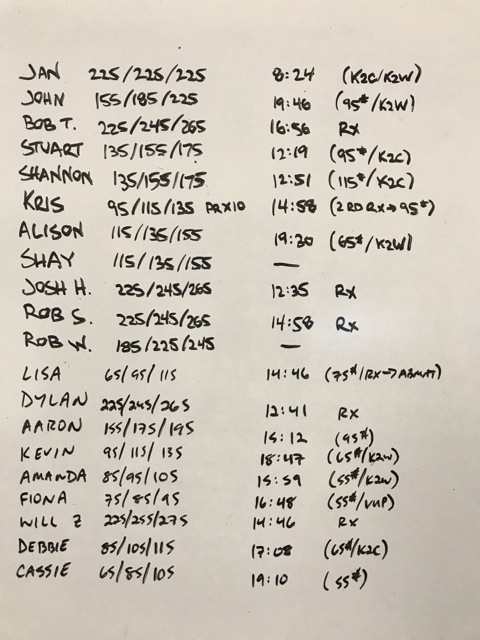 JAN 225/225/225 8:24 (K2C/K2W)
JOHN 155/185/225 19:46 (95#/K2W)
BOB T. 225/245/265 16:56 Rx
STUART 135/155/175 12:19 (95#/K2C)
SHANNON 135/155/175 12:51 (115#/K2C)
KRIS 95/115/135 PRX10 14:58 (2RD RX→95#)
ALISON 115/135/155 19:30 (65#/K2W)
SHAY 115/135/155 —
JOSH H. 225/245/265 12:35 Rx
ROB S. 225/245/265 14:58 Rx
ROB W. 185/225/245 —
LISA 65/95/115 14:46 (75#/RX→ABMAT)
DYLAN 225/245/265 12:41 RX
AARON 155/175/195 15:12 (95#)
KEVIN 95/115/135 18:47 (65#/K2W)
AMANDA 85/95/105 15:59 (55#/K2W)
FIONA 75/85/95 16:48 (55#/VUP)
WILL Z 225/255/275 14:46 Rx
DEBBIE 85/105/115 17:08 (65#/K2C)
CASSIE 65/85/105 19:10 (55#)